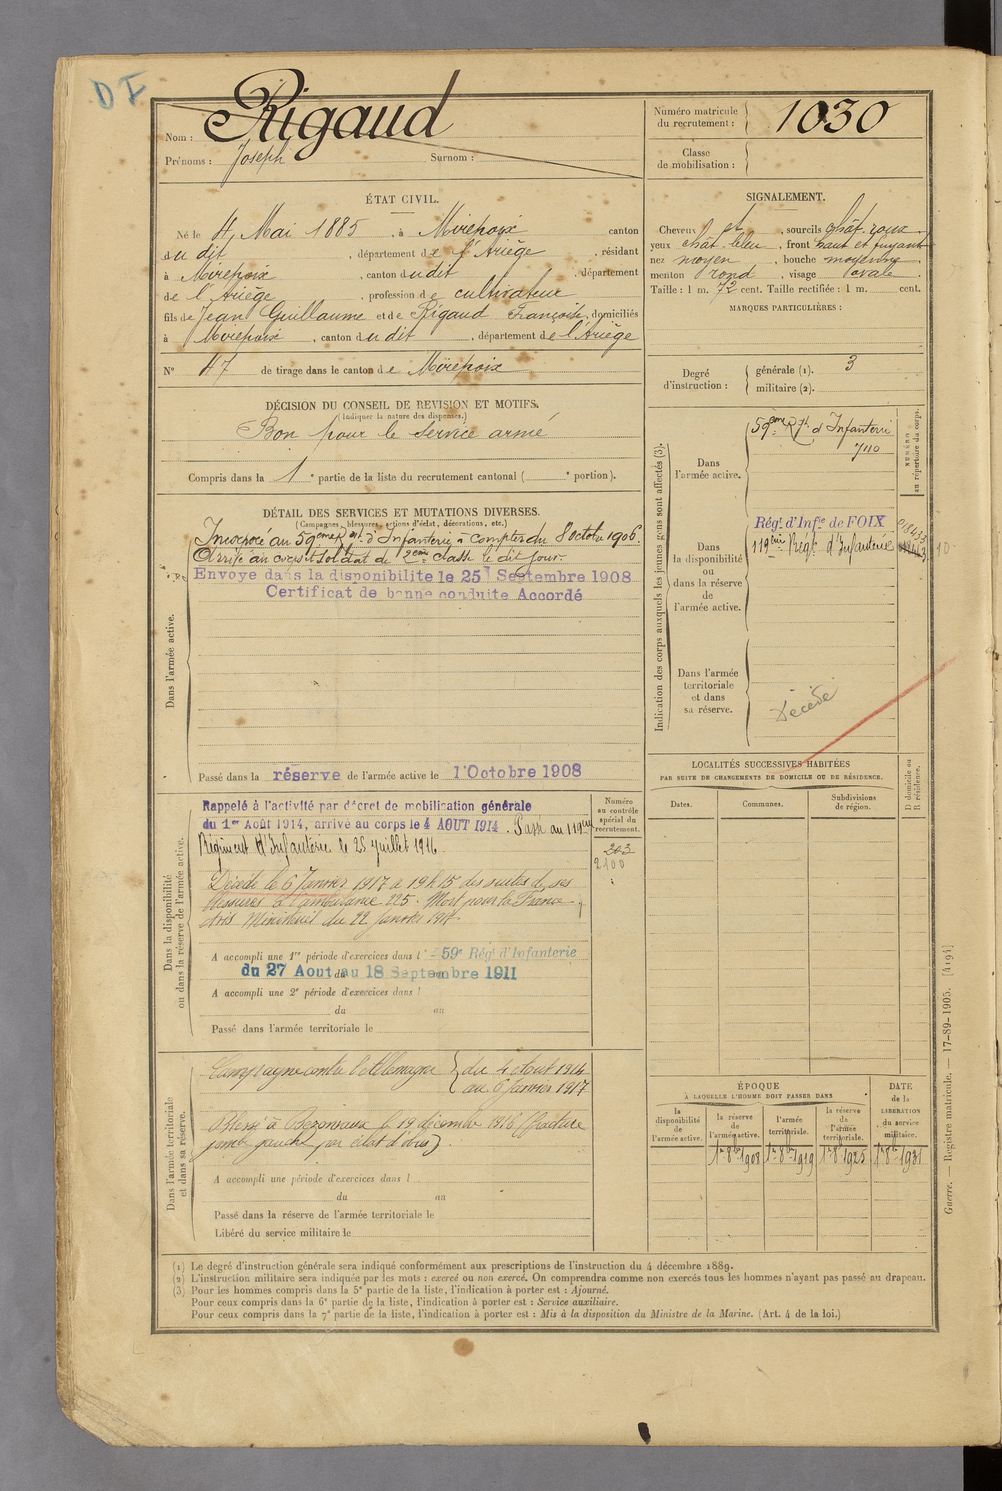 DF
Nom : Rigaud
Prénoms : Joseph Surnom :
Numéro matricule du recrutement : 1030
Classe de mobilisation :
ÉTAT CIVIL.
Né le 4 Mai 1885, à Mirepoix canton
du dit, département de l'Ariège, résidant
à Mirepoix, canton du dit, département
de l'Ariège, profession de cultivateur
fils de Jean Guillaume et de Rigaud Françoise, domiciliés
à Mirepoix, canton du dit, département de l'Ariège
N° 47 de tirage dans le canton de Mirepoix
SIGNALEMENT.
Cheveux et, sourcils chât. roux
yeux chât. bleu, front haut et fuyant
nez moyen, bouche moyenne
menton rond, visage ovale.
Taille : 1 m. 72 cent. Taille rectifiée : 1 m. cent.
MARQUES PARTICULIÈRES :
Degré d'instruction : générale (1). 3
militaire (2).
DÉCISION DU CONSEIL DE REVISION ET MOTIFS.
(Indiquer la nature des dispenses.)
Bon pour le service armé
Compris dans la 1e partie de la liste du recrutement cantonal ( e portion).
DÉTAIL DES SERVICES ET MUTATIONS DIVERSES.
(Campagnes, blessures, actions d'éclat, décorations, etc.)
Dans l'armée active.
Incorporé au 59eme Rgt d'Infanterie à compter du 8 octobre 1906.
Arrivé au corps et soldat de 2eme classe le dit jour.
Envoye dans la disponibilite le 25 Septembre 1908
Certificat de bonne conduite Accordé
Passé dans la réserve de l'armée active le 1 Octobre 1908
Dans la disponibilité ou dans la réserve de l'armée active.
Rappelé à l'activité par décret de mobilisation générale
du 1er Août 1914, arrivé au corps le 4 AOUT 1914. Passé au 119eme
Régiment d'Infanterie le 25 juillet 1916.
Décédé le 6 Janvier 1917 à 19h15 des suites de ses
blessures à l'ambulance 225. Mort pour la France,
Avis Ministériel du 22 Janvier 1917.
A accompli une 1re période d'exercices dans le 59e Régt d'Infanterie
du 27 Aout au 18 Septembre 1911
A accompli une 2e période d'exercices dans l
du au
Passé dans l'armée territoriale le
Numéro au contrôle spécial du recrutement.
203
2100
Dans l'armée territoriale et dans sa réserve.
Campagne contre l'Allemagne { du 4 Aout 1914
au 6 Janvier 1917
Blessé à Bezonvaux le 19 décembre 1916 (fracture
jambe gauche par éclat d'obus)
A accompli une période d'exercices dans l
du au
Passé dans la réserve de l'armée territoriale le
Libéré du service militaire le
Indication des corps auxquels les jeunes gens sont affectés (3).
Dans l'armée active.
59eme Rgt d'Infanterie
7110
NUMÉRO au répertoire du corps.
Dans la disponibilité ou dans la réserve de l'armée active.
Régt d'Infie de FOIX
119eme Régt d'Infanterie
Dans l'armée territoriale et dans sa réserve.
Décédé
LOCALITÉS SUCCESSIVES HABITÉES
PAR SUITE DE CHANGEMENTS DE DOMICILE OU DE RÉSIDENCE.
Dates. Communes. Subdivisions de région. D domicile ou R résidence.
ÉPOQUE
À LAQUELLE L'HOMME DOIT PASSER DANS
la disponibilité de l'armée active. la réserve de l'armée active. l'armée territoriale. la réserve de l'armée territoriale.
DATE de la LIBÉRATION du service militaire.
1er 8bre 1908 1er 8bre 1919 1er 8bre 1925 1er 8bre 1931
Guerre. — Registre matricule. — 17-89-1905. [4194]
(1) Le degré d'instruction générale sera indiqué conformément aux prescriptions de l'instruction du 4 décembre 1889.
(2) L'instruction militaire sera indiquée par les mots : exercé ou non exercé. On comprendra comme non exercés tous les hommes n'ayant pas passé au drapeau.
(3) Pour les hommes compris dans la 5e partie de la liste, l'indication à porter est : Ajourné.
Pour ceux compris dans la 6e partie de la liste, l'indication à porter est : Service auxiliaire.
Pour ceux compris dans la 7e partie de la liste, l'indication à porter est : Mis à la disposition du Ministre de la Marine. (Art. 4 de la loi.)